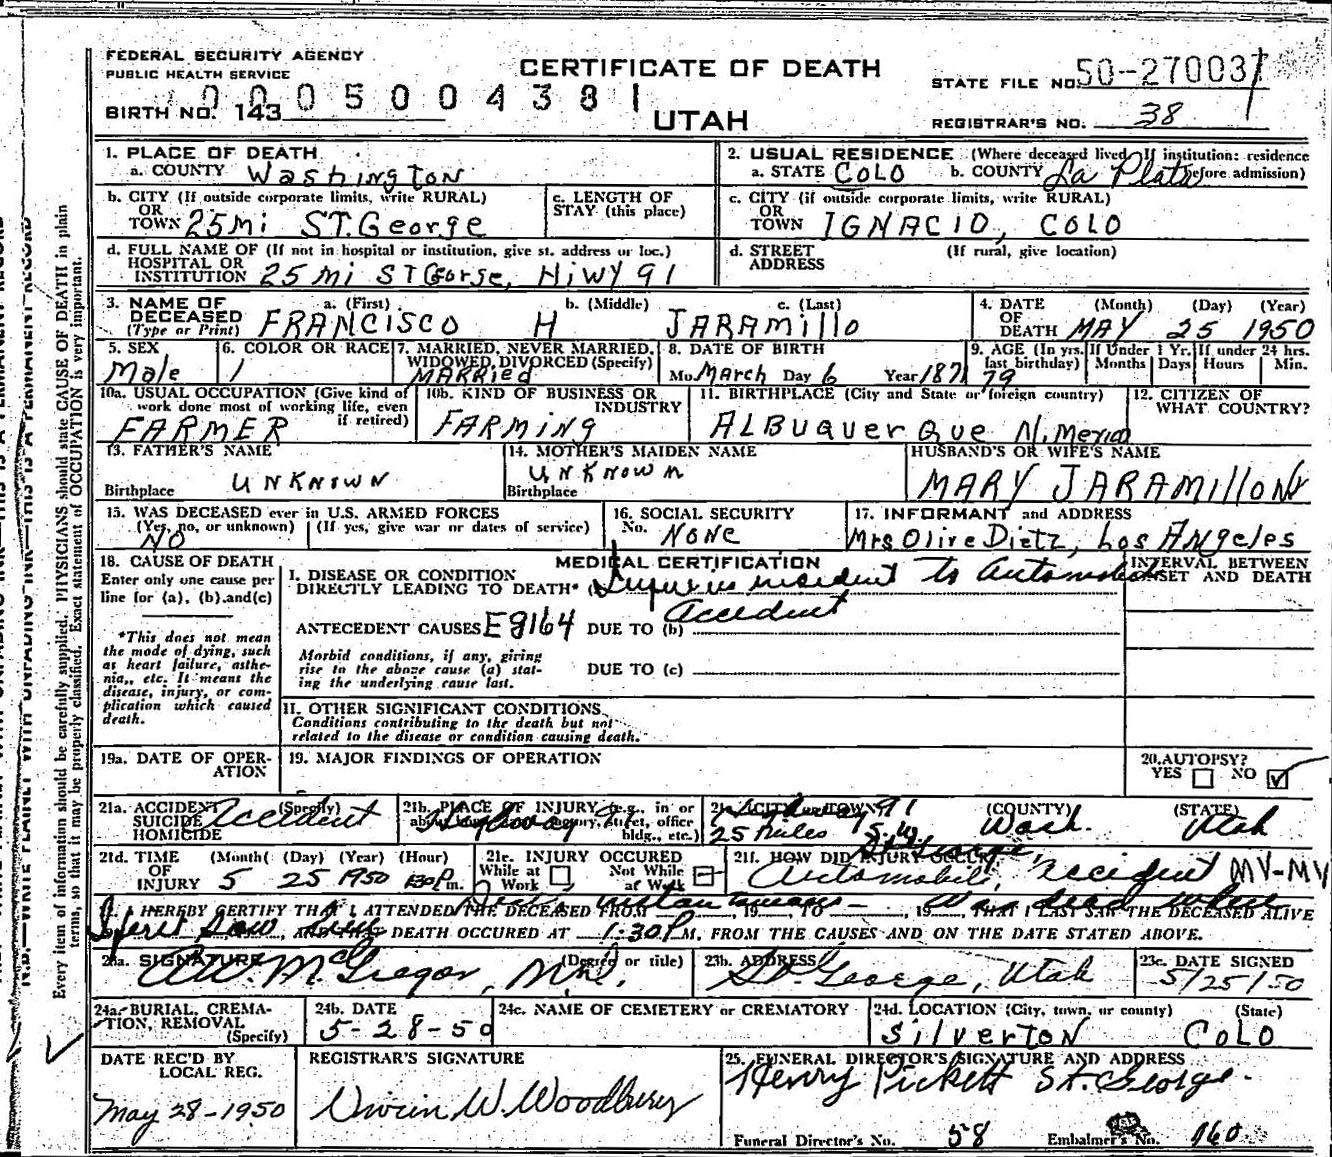 FEDERAL SECURITY AGENCY
PUBLIC HEALTH SERVICE
CERTIFICATE OF DEATH
STATE FILE NO. 50-270037
0005004381
BIRTH NO. 143
UTAH
REGISTRAR'S NO. 38
1. PLACE OF DEATH
a. COUNTY Washington
2. USUAL RESIDENCE (Where deceased lived. If institution: residence before admission)
a. STATE COLO b. COUNTY La Plata
b. CITY (If outside corporate limits, write RURAL)
OR
TOWN 25 mi ST. George
c. LENGTH OF
STAY (this place)
c. CITY (if outside corporate limits, write RURAL)
OR
TOWN IGNACIO, COLO
d. FULL NAME OF (If not in hospital or institution, give st. address or loc.)
HOSPITAL OR
INSTITUTION 25 mi ST George, HiWY 91
d. STREET (If rural, give location)
ADDRESS
3. NAME OF a. (First) b. (Middle) c. (Last)
DECEASED
(Type or Print) FRANCISCO H JARAMillO
4. DATE (Month) (Day) (Year)
OF
DEATH MAY 25 1950
5. SEX
Male
6. COLOR OR RACE
1
7. MARRIED, NEVER MARRIED,
WIDOWED, DIVORCED (Specify)
MARRIED
8. DATE OF BIRTH
Mo. March Day 6 Year 1871
9. AGE (In yrs. last birthday) If Under 1 Yr. If under 24 hrs.
79 Months Days Hours Min.
10a. USUAL OCCUPATION (Give kind of
work done most of working life, even
if retired)
FARMER
10b. KIND OF BUSINESS OR
INDUSTRY
FARMING
11. BIRTHPLACE (City and State or foreign country)
ALBuquerque N. Mexico
12. CITIZEN OF
WHAT COUNTRY?
13. FATHER'S NAME
UNKNOWN
Birthplace
14. MOTHER'S MAIDEN NAME
UNKNOWN
Birthplace
HUSBAND'S OR WIFE'S NAME
MARY JARAMILLO
15. WAS DECEASED ever in U.S. ARMED FORCES
(Yes, no, or unknown) (If yes, give war or dates of service)
NO
16. SOCIAL SECURITY
No. NONE
17. INFORMANT and ADDRESS
Mrs Olive Dietz, Los Angeles
18. CAUSE OF DEATH
Enter only one cause per
line for (a), (b), and (c)
*This does not mean
the mode of dying, such
as heart failure, asthe-
nia, etc. It means the
disease, injury, or com-
plication which caused
death.
MEDICAL CERTIFICATION
I. DISEASE OR CONDITION
DIRECTLY LEADING TO DEATH* to Automobile
accident
ANTECEDENT CAUSES E8164 DUE TO (b)
Morbid conditions, if any, giving
rise to the above cause (a) stat-
ing the underlying cause last.
DUE TO (c)
II. OTHER SIGNIFICANT CONDITIONS
Conditions contributing to the death but not
related to the disease or condition causing death.
INTERVAL BETWEEN
ONSET AND DEATH
19a. DATE OF OPER-
ATION
19. MAJOR FINDINGS OF OPERATION
20. AUTOPSY?
YES NO ✓
21a. ACCIDENT (Specify)
SUICIDE
HOMICIDE
Accident
21b. PLACE OF INJURY (e.g., in or
about home, farm, factory, street, office
bldg., etc.)
Highway 91
21c. (CITY or TOWN) (COUNTY) (STATE)
Highway 91
25 miles S.W. St George Wash. Utah
21d. TIME (Month) (Day) (Year) (Hour)
OF
INJURY 5 25 1950 1:30 P.m.
21e. INJURY OCCURED
While at Work Not While at Work
21f. HOW DID INJURY OCCUR?
Automobile accident MV-MV
22. I HEREBY CERTIFY THAT I ATTENDED THE DECEASED FROM, 19 TO, 19 THAT I LAST SAW THE DECEASED ALIVE
Death instantaneous - Was dead when
I first saw him, AND THAT DEATH OCCURED AT 1:30 P M. FROM THE CAUSES AND ON THE DATE STATED ABOVE.
23a. SIGNATURE (Degree or title)
A.W. McGregor, M.D.
23b. ADDRESS
St. George, Utah
23c. DATE SIGNED
5/25/50
24a. BURIAL, CREMA-
TION, REMOVAL
(Specify)
24b. DATE
5-28-50
24c. NAME OF CEMETERY or CREMATORY
24d. LOCATION (City, town, or county) (State)
Silverton COLO
DATE REC'D BY
LOCAL REG.
May 28-1950
REGISTRAR'S SIGNATURE
Vivian W. Woodbury
25. FUNERAL DIRECTOR'S SIGNATURE AND ADDRESS
Henry Pickett St. George.
Funeral Director's No. 58 Embalmer's No. 160
Every item of information should be carefully supplied. PHYSICIANS should state CAUSE OF DEATH in plain
terms, so that it may be properly classified. Exact statement of OCCUPATION is very important.
N.B.—WRITE PLAINLY WITH UNFADING INK—THIS IS A PERMANENT RECORD